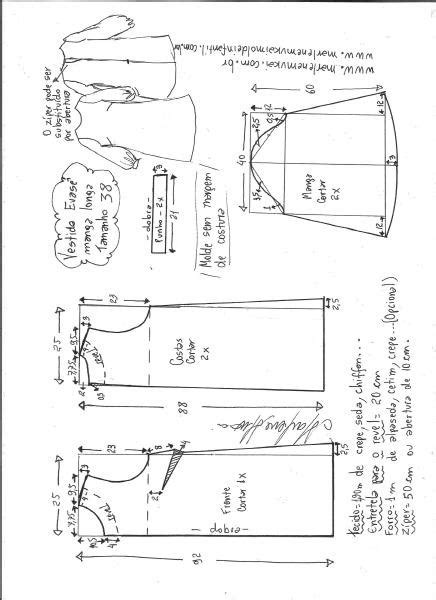 www.marlenemukai.com.br
www.marlenemukaimoldeinfantil.com.br
O zíper pode ser
substituído
por abertura
Vestido Evasê
manga longa
Tamanho 38
3
-dobra-
Punho - 2x
21
Molde sem margem
de costura
60
12
9,5
2,5
40
3,5
1
Manga
Cortar
2x
12
3
12
23
25
9,5
3
7,75
2
revel
Costas
Cortar
2x
88
2,5
23
25
9,5
3
7,75
revel
10,5
4
8
4
2
Frente
Cortar 1x
-dobra-
92
2,5
Tecido=1,90m de crepe, seda, chiffon...
Entretela para o revel= 20 cm
Forro= 1 m de alpaseda, cetim, crepe...(Opcional)
Zíper= 50 cm ou abertura de 10 cm.